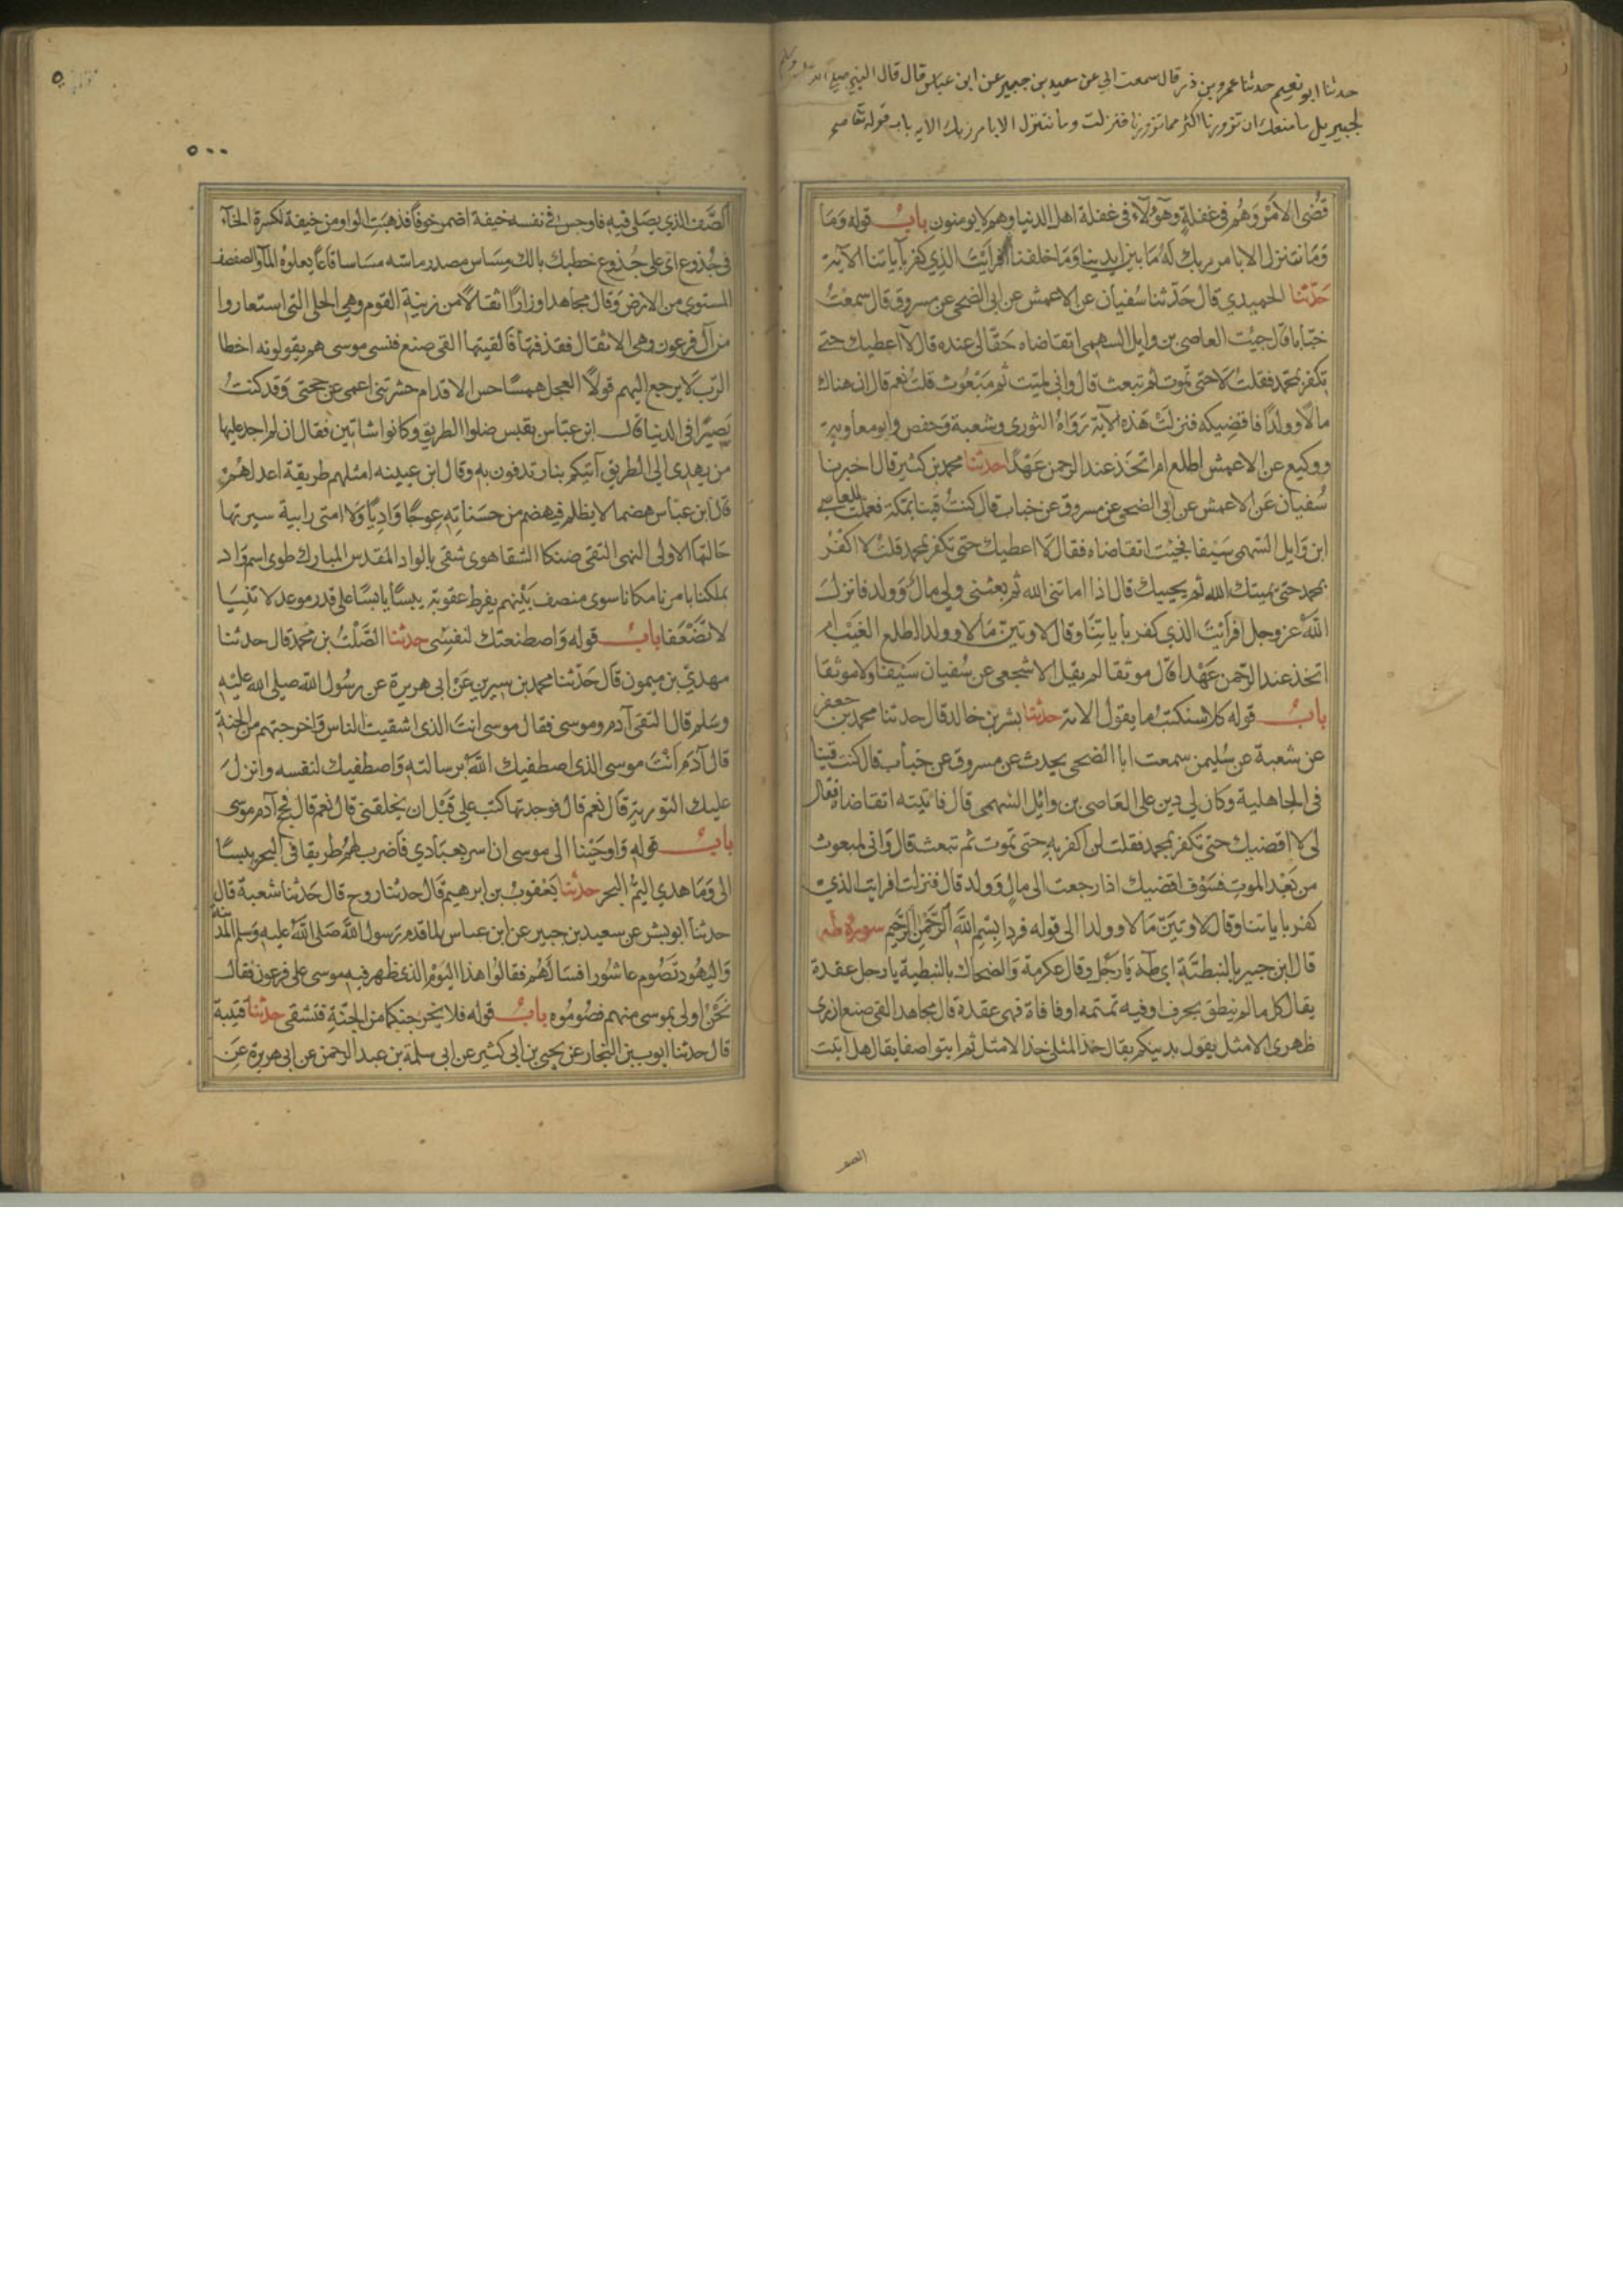 حدثنا ابو نعيم حدثنا عمرو بن ذر قال سمعت ابي عن سعيد بن جبير عن ابن عباس قال قال النبي صلى الله عليه وسلم
لجبريل ما منعك ان تزورنا اكثر مما تزورنا فنزلت وما نتنزل الا بامر ربك الايه باب قوله تعالى
قضي الامر وهم في غفلة وهؤلاء في غفلة اهل الدنيا وهم لا يومنون باب قوله وما
وما نتنزل الا بامر ربك له ما بين ايدينا وما خلفنا افرأيت الذي كفر بآياتنا الآية
حدثنا الحميدي قال حدثنا سفيان عن الاعمش عن ابي الضحى عن مسروق قال سمعت
خبابا قال جيت العاصي بن وايل السهمي اتقاضاه حقا لي عنده قال لا اعطيك حتى
تكفر بمحمد فقلت لا حتى تموت ثم تبعث قال واني لميت ثم مبعوث قلت نعم قال ان هناك
مالا وولدا فاقضيكه فنزلت هذه الآية رواه الثوري وشعبة وحفص وابو معاوية
ووكيع عن الاعمش اطلع ام اتخذ عند الرحمن عهدا حدثنا محمد بن كثير قال اخبرنا
سفيان عن الاعمش عن ابي الضحى عن مسروق عن خباب قال كنت قينا بمكة فعملت للعاصي
ابن وايل السهمي سيفا فجيت اتقاضاه فقال لا اعطيك حتى تكفر بمحمد قلت لا اكفر
بمحمد حتى يميتك الله ثم يحييك قال اذا اماتني الله ثم بعثني ولي مال وولد فانزل
الله عز وجل افرأيت الذي كفر بأياتنا وقال لاوتين مالا وولدا اطلع الغيب ام
اتخذ عند الرحمن عهدا قال موثقا لم يقل الاشجعي عن سفيان سيفا ولا موثقا
باب قوله كلا سنكتب ما يقول الاية حدثنا بشر بن خالد قال حدثنا محمد بن جعفر
عن شعبة عن سليمن سمعت ابا الضحى يحدث عن مسروق عن خباب قال كنت قينا
في الجاهلية وكان لي دين على العاصي بن وائل السهمي قال فاتيته اتقاضاه فقال
لي لا اقضيك حتى تكفر بمحمد فقلت لن اكفر به حتى تموت ثم تبعث قال واني لمبعوث
من بعد الموت فسوف اقضيك اذا رجعت الى مال وولد قال فنزلت افرايت الذي
كفر باياتنا وقال لاوتين مالا وولدا الى قوله فردا بسم الله الرحمن الرحيم سورة طه
قال ابن جبير بالنبطية اي طه يا رجل وقال عكرمة والضحاك بالنبطية يا رجل عقدة
يقال كل ما لم ينطق بحرف او فيه تمتمه او فافاة فهي عقدة قال مجاهد القى صنع ازري
ظهري الامثل يقول بدينكم يقال خذ المثلى خذ الامثل ثم ايتوا صفا يقال هل اتيت
الصف
٥٠٠
الصف الذي يصلى فيه فاوجس في نفسه خيفة اضمر خوفا فذهبت الواو من خيفة لكسرة الخاء
في جذوع اي على جذوع خطبك بالك مساس مصدر ماسه مساسا قاعا يعلوه الماء والصفصف
المستوي من الارض وقال مجاهد اوزارا اثقالا من زينة القوم وهي الحلي التي استعاروا
من آل فرعون وهي الاثقال فقذفتها فألقيتها القى صنع فنسي موسى هم يقولونه اخطا
الرب لا يرجع اليهم قولا العجل همسا حس الاقدام حشرتني اعمى عن حجتي وقد كنت
بصيرا في الدنيا قال ابن عباس بقبس ضلوا الطريق وكانوا شاتين فقال ان لم اجد عليها
من يهدي الى الطريق آتيكم بنار تدفون به وقال ابن عيينه امثلهم طريقة اعدلهم
قال ابن عباس هضما لا يظلم فيهضم من حسناته عوجا واديا ولا امتى رابية سيرتها
حالتها الاولى النهى التقى ضنكا الشقا هوى شقي بالواد المقدس المبارك طوى اسم واد
بملكنا بامرنا مكانا سوى منصف بينهم يفرط عقوبة يبسا يابسا على قدر موعد لا تنيا
لا تضعفا باب قوله واصطنعتك لنفسي حدثنا الصلت بن محمد قال حدثنا
مهدي بن ميمون قال حدثنا محمد بن سيرين عن ابي هريرة عن رسول الله صلى الله عليه
وسلم قال التقى آدم وموسى فقال موسى انت الذي اشقيت الناس واخرجتهم من الجنة
قال آدم أنت موسى الذي اصطفيك الله برسالته واصطفيك لنفسه وانزل
عليك التورية قال نعم قال فوجدتها كتب علي قبل ان يخلقني قال نعم قال فحج آدم موسى
باب قوله واوحينا الى موسى ان اسر بعبادي فاضرب لهم طريقا في البحر يبسا
الى وما هدى اليم البحر حدثنا يعقوب بن ابرهيم قال حدثنا روح قال حدثنا شعبة قال
حدثنا ابو بشر عن سعيد بن جبير عن ابن عباس لما قدم رسول الله صلى الله عليه وسلم المدينة
واليهود تصوم عاشورا فسالهم فقالوا هذا اليوم الذي ظهر فيه موسى على فرعون فقال
نحن اولى بموسى منهم فصوموه باب قوله فلا يخرجنكما من الجنة فتشقى حدثنا قتيبة
قال حدثنا ايوب بن النجار عن يحيى بن ابي كثير عن ابي سلمة بن عبد الرحمن عن ابي هريرة عن